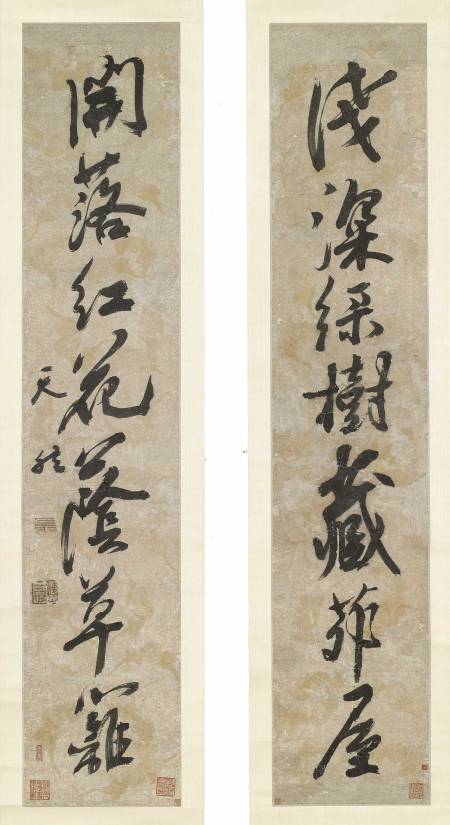 淺深綠樹藏茆屋
開落紅花蔭草籬
天然